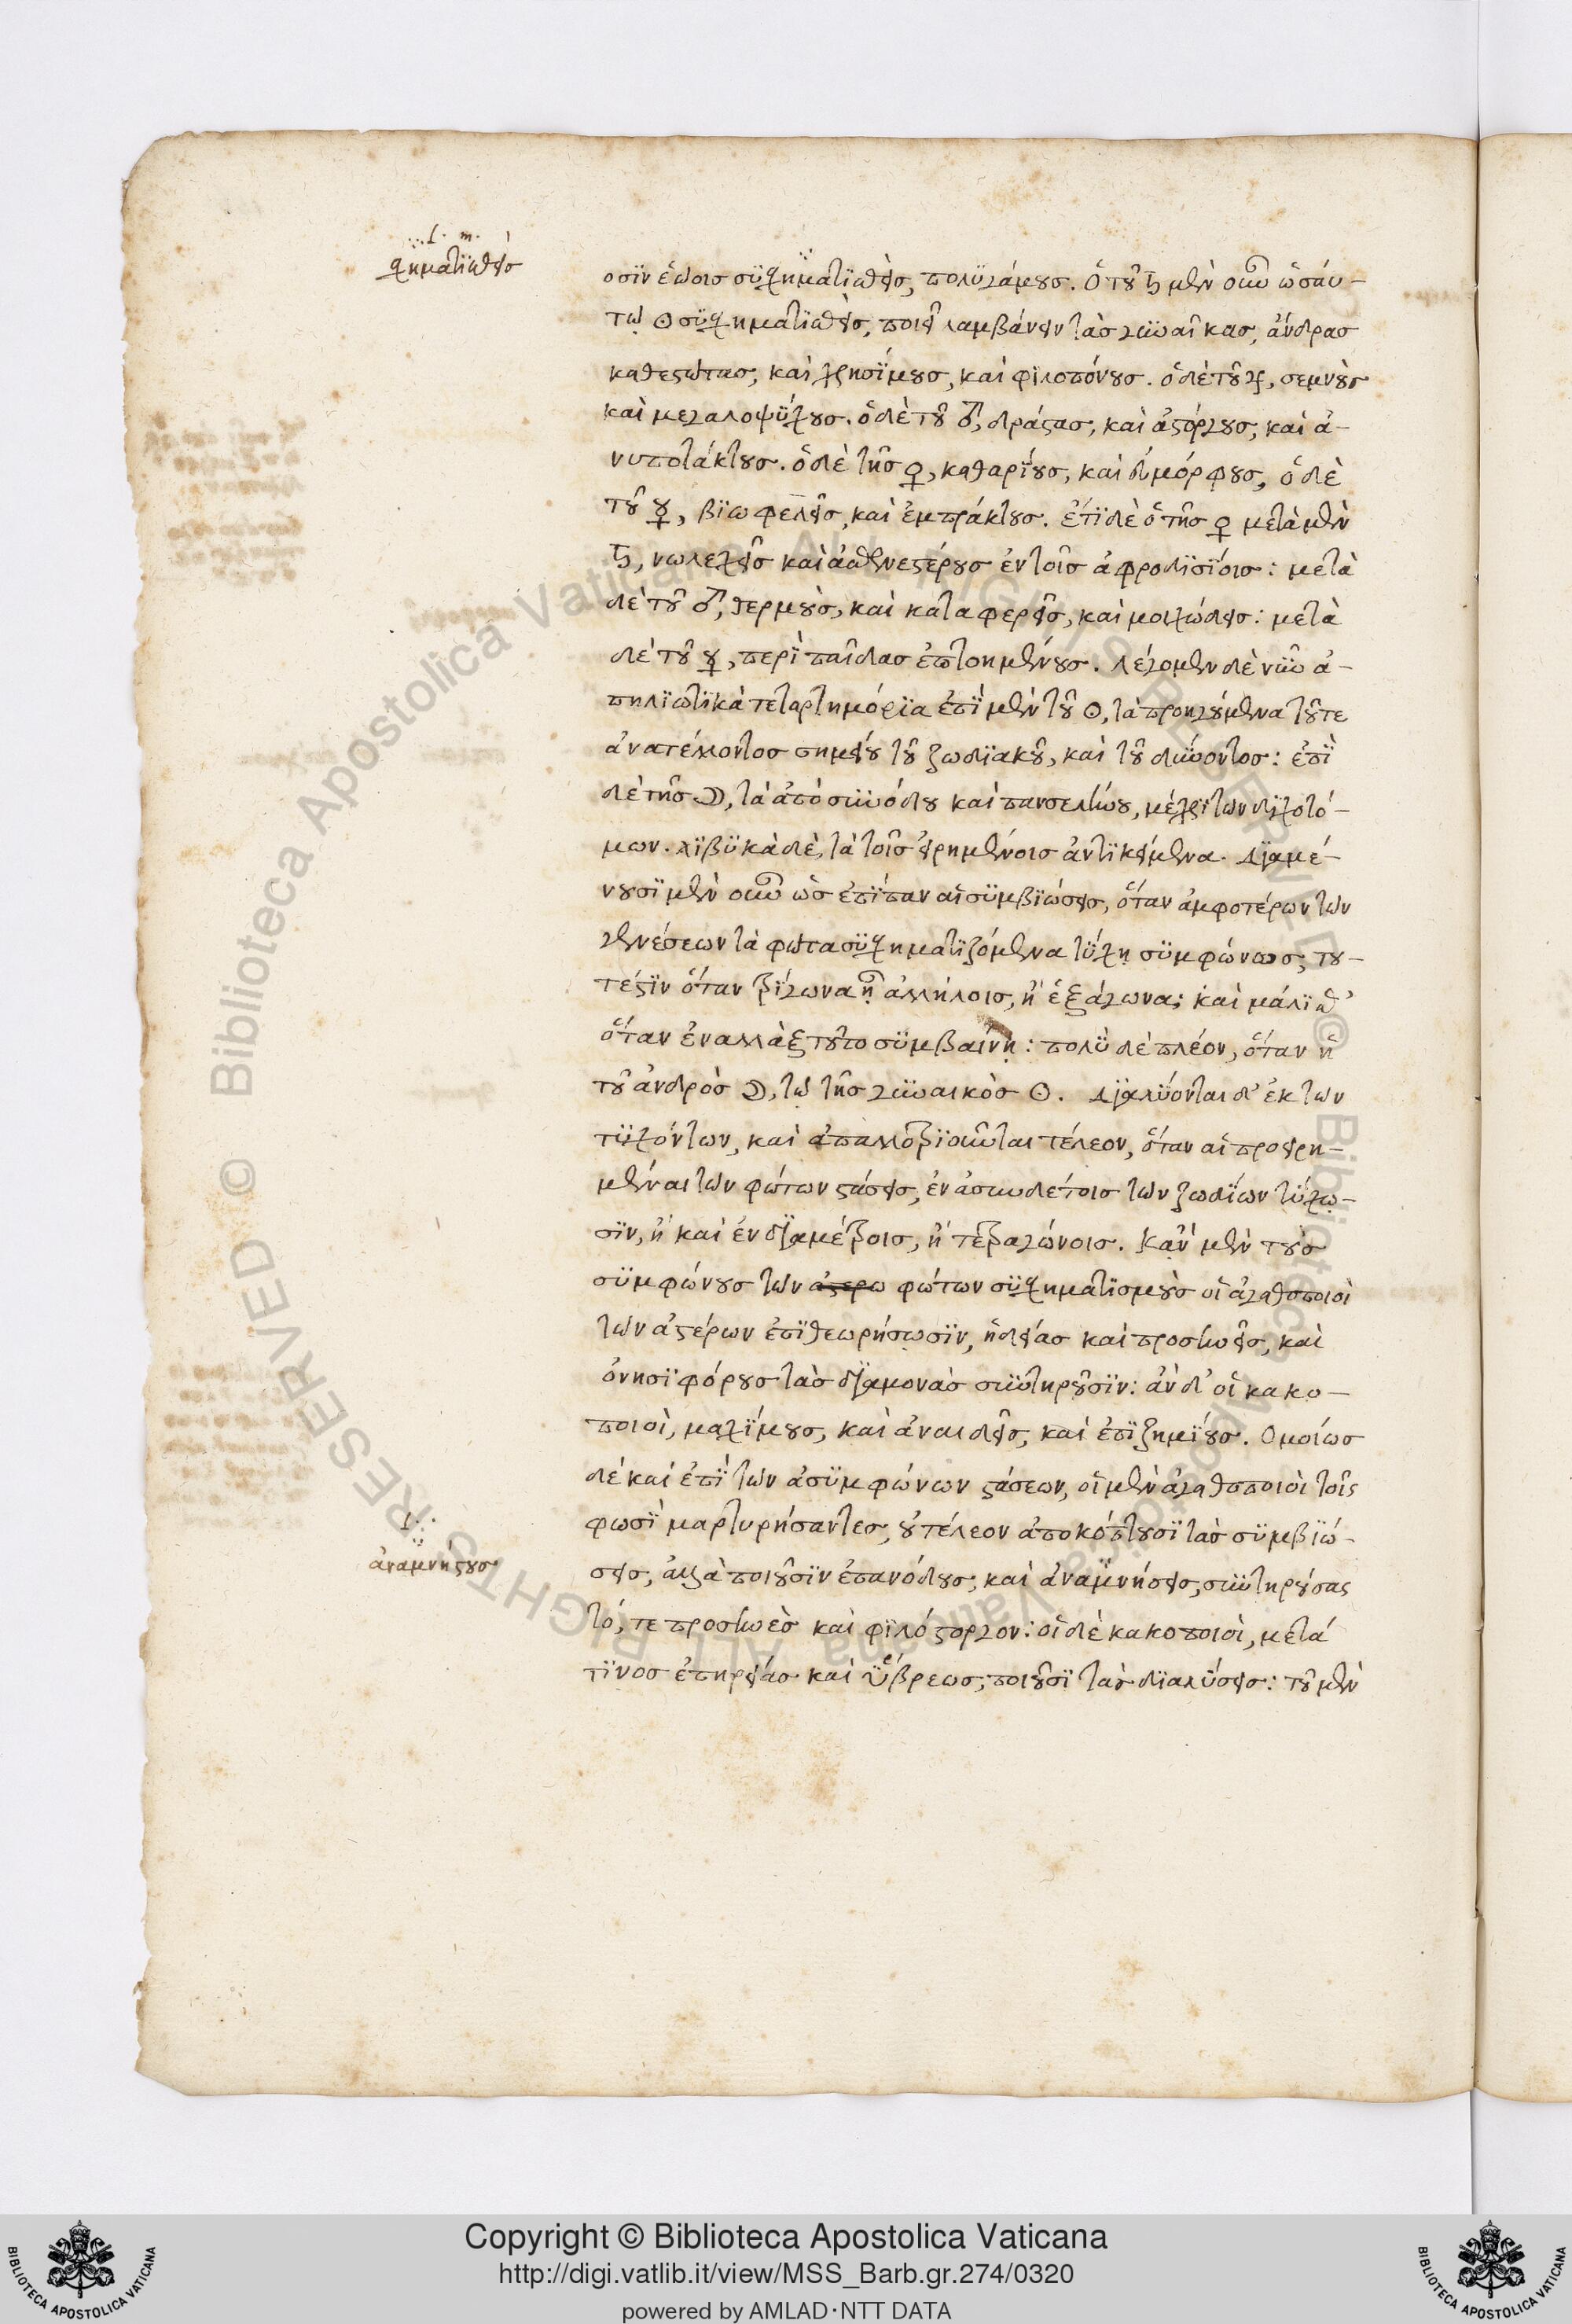 σχηματισθεὶς
οσιν ἑώοις συσχηματισθεὶς, πολυγάμους. Ὁ τοῦ ♄ μὲν οὖν ὡσαύ-
τω ☉ συσχηματισθεὶς, ποιεῖ λαμβάνειν τὰς γυναῖκας, ἄνδρας
καθεστῶτας, καὶ χρησίμους, καὶ φιλοπόνους. ὁ δὲ τοῦ ♃, σεμνοὺς
καὶ μεγαλοψύχους. ὁ δὲ τοῦ ♂, δράστας, καὶ ἀστόργους, καὶ ἀ-
νυποτάκτους. ὁ δὲ τῆς ♀, καθαρίους, καὶ εὐμόρφους, ὁ δὲ
τοῦ ☿, βιωφελεῖς, καὶ ἐμπράκτους. ἔτι δὲ ὁ τῆς ♀ μετὰ μὲν
♄, νωλεχεῖς καὶ ἀσθενεστέρους ἐν τοῖς ἀφροδισίοις: μετὰ
δὲ τοῦ ♂, θερμοὺς, καὶ καταφερεῖς, καὶ μοιχώδεις: μετὰ
δὲ τοῦ ☿, περὶ παῖδας ἐπτοημένους. Λέγομεν δὲ νῦν ἀ-
πηλιωτικὰ τεταρτημόρια ἐπὶ μὲν τοῦ ☉, τὰ προηγούμενα τοῦ τε
ἀνατέλλοντος σημείου τοῦ ζωδιακοῦ, καὶ τοῦ δύνοντος: ἐπὶ
δὲ τῆς ☽, τὰ ἀπὸ συνόδου καὶ πανσελήνου, μέχρι τῶν διχοτό-
μων. λιβυκὰ δὲ, τὰ τοῖς εἰρημένοις ἀντικείμενα. Διαμέ-
νουσι μὲν οὖν ὡς ἐπίπαν αἱ συμβιώσεις, ὅταν ἀμφοτέρων τῶν
γενέσεων τὰ φῶτα συσχηματιζόμενα τύχῃ συμφώνως, του-
τέστιν ὅταν τρίγωνα ᾖ ἀλλήλοις, ἢ ἑξάγωνα; καὶ μάλισθ᾽
ὅταν ἐναλλὰξ τοῦτο συμβαίνῃ: πολὺ δὲ πλέον, ὅταν ἡ
τοῦ ἀνδρὸς ☽, τῷ τῆς γυναικὸς ☉. Διαλύονται δ᾽ ἐκ τῶν
τυχόντων, καὶ ἀπαλλοτριοῦνται τέλεον, ὅταν αἱ προειρη-
μέναι τῶν φώτων στάσεις, ἐν ἀσυνδέτοις τῶν ζωδίων τύχω-
σιν, ἢ καὶ ἐν διαμέτροις, ἢ τετραγώνοις. Κἂν μὲν τοὺς
συμφώνους τῶν ἀστερω φώτων συσχηματισμοὺς οἱ ἀγαθοποιοὶ
τῶν ἀστέρων ἐπιθεωρήσωσιν, ἡδείας καὶ προσηνεῖς, καὶ
ὀνησιφόρους τὰς διαμονὰς συντηροῦσιν: ἂν δ᾽ οἱ κακο-
ποιοὶ, μαχίμους, καὶ ἀναιδεῖς, καὶ ἐπιζημίους. Ὁμοίως
δὲ καὶ ἐπὶ τῶν ἀσυμφώνων στάσεων, οἱ μὲν ἀγαθοποιοὶ τοῖς
φωσὶ μαρτυρήσαντες, οὐ τέλεον ἀποκόπτουσι τὰς συμβιώ-
ἀναμνήστους
σεις, ἀλλὰ ποιοῦσιν ἐπανόδους, καὶ ἀναμνήσεις, συντηρούσας
τό, τε προσηνὲς καὶ φιλόστοργον: οἱ δὲ κακοποιοὶ, μετά
τινος ἐπηρείας καὶ ὕβρεως, ποιοῦσι τὰς διαλύσεις: τοῦ μὲν
Copyright © Biblioteca Apostolica Vaticana
http://digi.vatlib.it/view/MSS_Barb.gr.274/0320
powered by AMLAD·NTT DATA